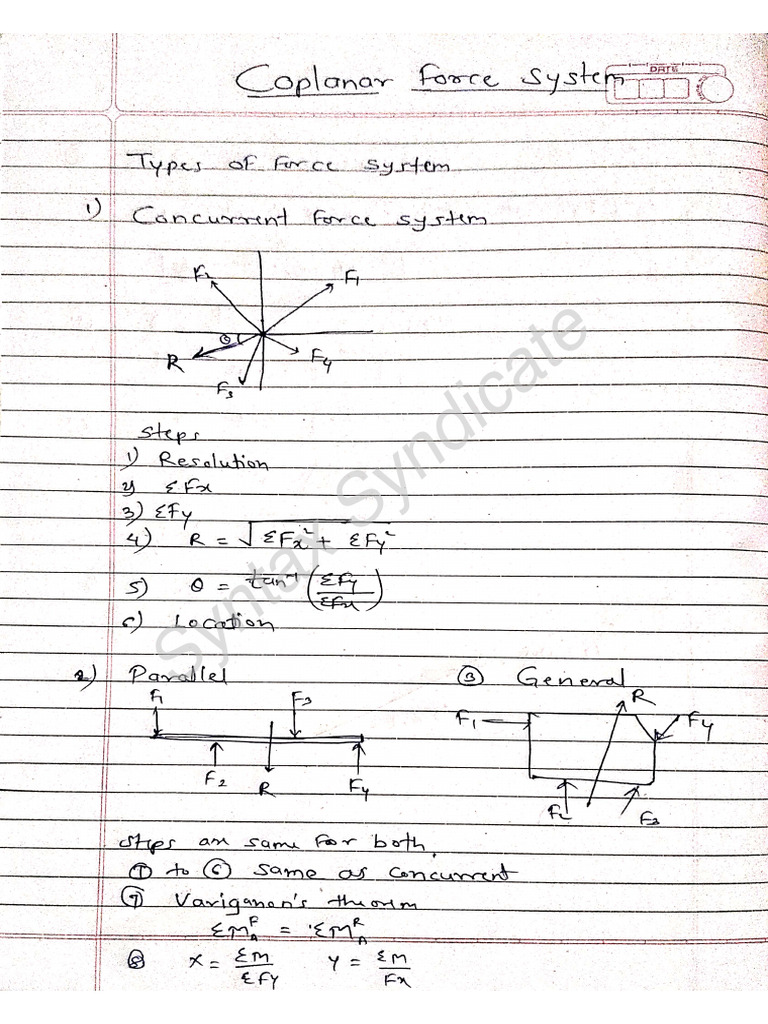 Coplanar Force System
DATE
Types of Force System
1) Concurrent Force System
F2 F1
θ
R F4
F3
Steps
1) Resolution
2) ΣFx
3) ΣFy
4) R = √ΣFx² + ΣFy²
5) θ = tan⁻¹ (ΣFy/ΣFx)
6) Location
2) Parallel ③ General
F1 F3 R
F1 F4
F2 R F4
F2 F3
Steps are same for both,
① to ⑥ same as concurrent
⑦ Variganon's theorem
ΣM_A^F = ΣM_A^R
⑧ x = ΣM/ΣFy y = ΣM/Fx
Syntax Syndicate